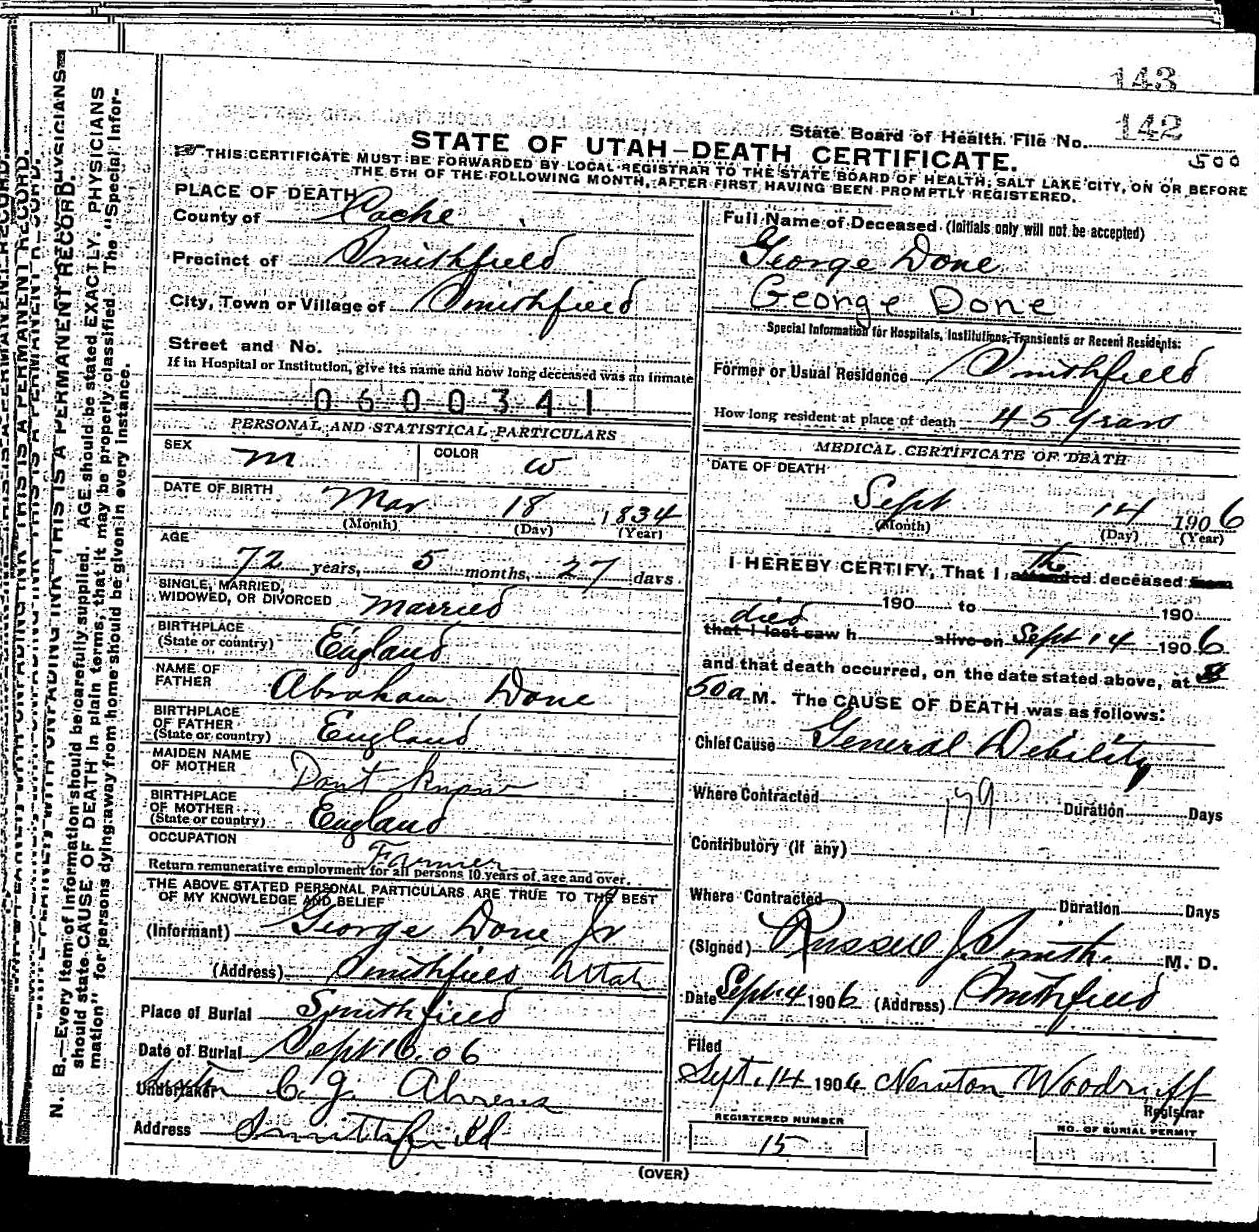 143
State Board of Health File No. 142
500
STATE OF UTAH—DEATH CERTIFICATE.
☞THIS CERTIFICATE MUST BE FORWARDED BY LOCAL REGISTRAR TO THE STATE BOARD OF HEALTH, SALT LAKE CITY, ON OR BEFORE
THE 5TH OF THE FOLLOWING MONTH, AFTER FIRST HAVING BEEN PROMPTLY REGISTERED.
PLACE OF DEATH
County of Cache
Precinct of Smithfield
City, Town or Village of Smithfield
Street and No.
If in Hospital or Institution, give its name and how long deceased was an inmate
0600341
PERSONAL AND STATISTICAL PARTICULARS
SEX m COLOR w
DATE OF BIRTH Mar 18 1834
(Month) (Day) (Year)
AGE
72 years, 5 months, 27 days
SINGLE, MARRIED,
WIDOWED, OR DIVORCED Married
BIRTHPLACE
(State or country) England
NAME OF
FATHER Abraham Done
BIRTHPLACE
OF FATHER
(State or country) England
MAIDEN NAME
OF MOTHER Dont know
BIRTHPLACE
OF MOTHER
(State or country) England
OCCUPATION
Farmer
Return remunerative employment for all persons 10 years of age and over.
THE ABOVE STATED PERSONAL PARTICULARS ARE TRUE TO THE BEST
OF MY KNOWLEDGE AND BELIEF
(Informant) George Done Jr
(Address) Smithfield Utah
Place of Burial Smithfield
Date of Burial Sept 16. 06
Undertaker Sexton C. J. Ahrens
Address Smithfield
Full Name of Deceased (Initials only will not be accepted)
George Done
George Done
Special Information for Hospitals, Institutions, Transients or Recent Residents:
Former or Usual Residence Smithfield
How long resident at place of death 45 years
MEDICAL CERTIFICATE OF DEATH
DATE OF DEATH
Sept 14 1906
(Month) (Day) (Year)
I HEREBY CERTIFY, That I attended The deceased from
190 to 190
died
that I last saw h alive on Sept 14 1906
and that death occurred, on the date stated above, at 8
50 a M. The CAUSE OF DEATH was as follows:
Chief Cause General Debility
Where Contracted 179 Duration Days
Contributory (if any)
Where Contracted Duration Days
(Signed) Russell J. Smith. M. D.
Date Sept. 4 1906 (Address) Smithfield
Filed
Sept. 14 1906 Newton Woodruff
Registrar
REGISTERED NUMBER
15
NO. OF BURIAL PERMIT
(OVER)
THIS IS A PERMANENT RECORD.
N. B.—Every item of information should be carefully supplied. AGE should be stated EXACTLY. PHYSICIANS
should state CAUSE OF DEATH in plain terms, that it may be properly classified. The "Special Infor-
mation" for persons dying away from home should be given in every instance.